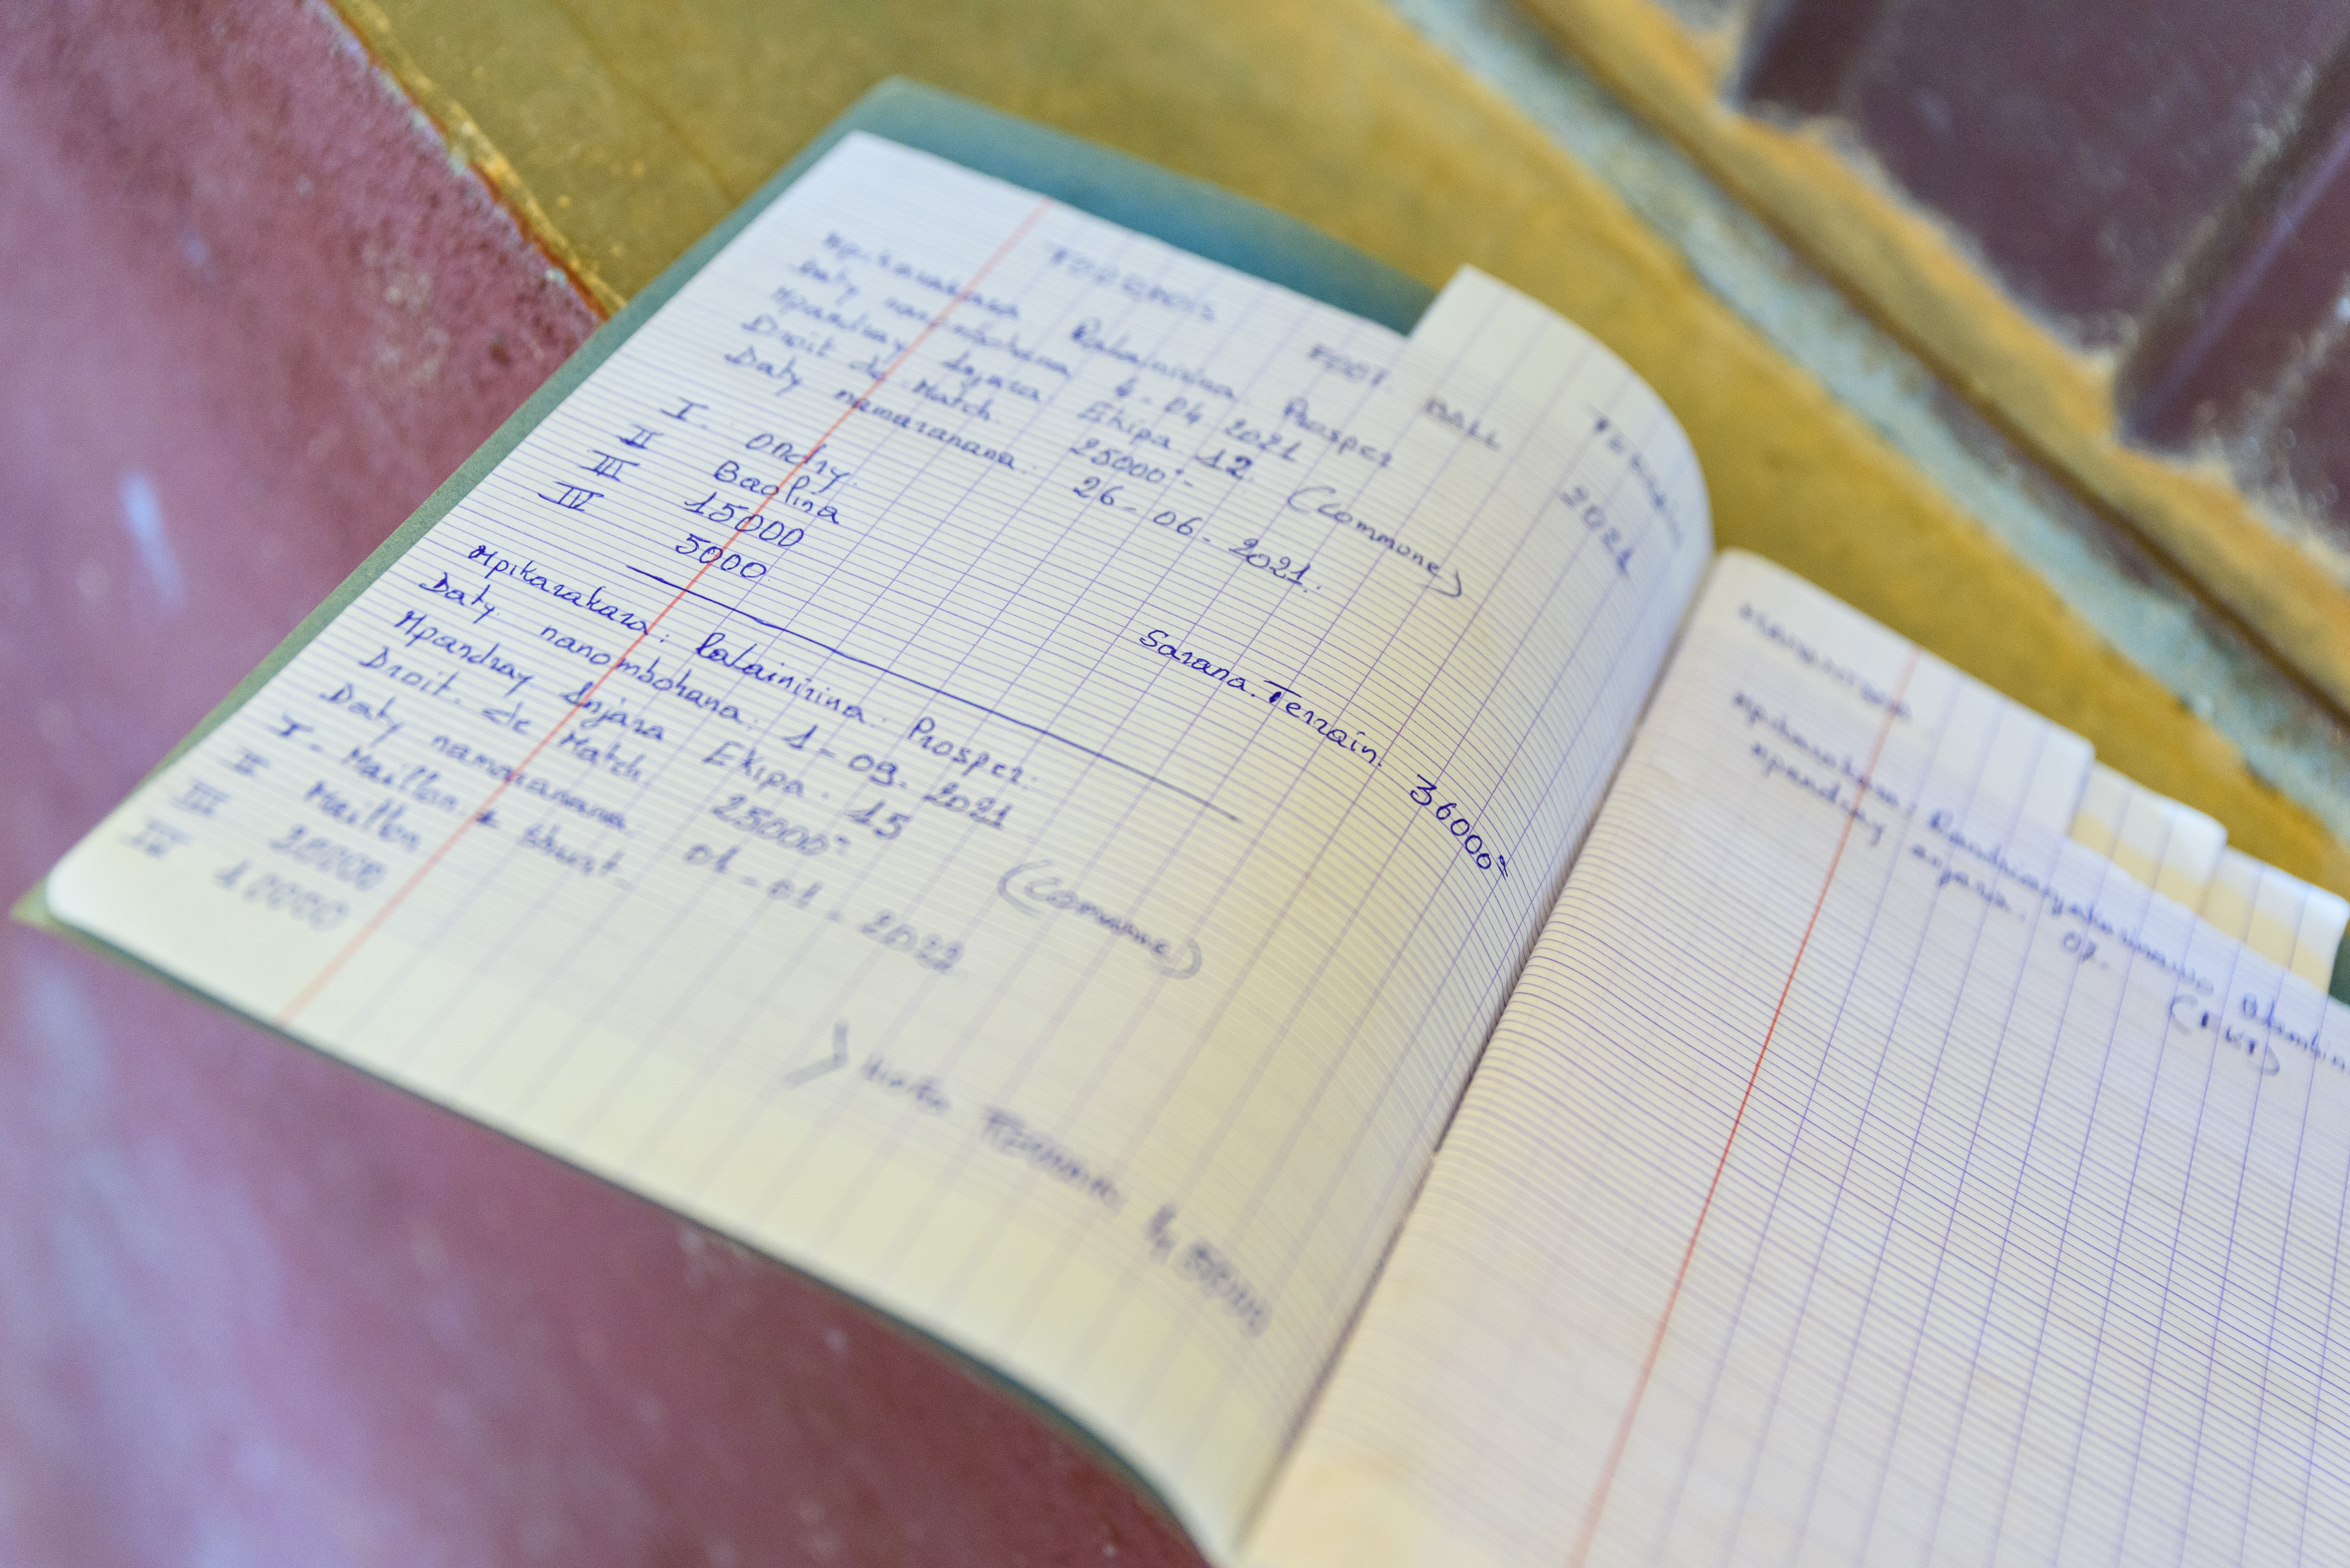 TOURNOIS FOOT BALL
2021
Mpikarakara Ralainirina Prosper
Daty nanombohana 4-04 2021
Mpandray Anjara Ekipa 12. (Commune)
Droit de Match. 25000
Daty namaranana: 26-06-2021.
I. Ondry.
II Baolina
III 15000
IV 5000
Sarana. Terrain. 36000
Mpikarakara: Ralainirina. Prosper.
Daty. nanombohana: 1-09. 2021
Mpandray Anjara Ekipa. 15 (Commune)
Droit. de Match 25000
Daty namaranana 01-01-2022
I- Maillon + Short-
II Maillon
III 20000
IV 10000
Mpikarakara:
mpandray anjara. 07.